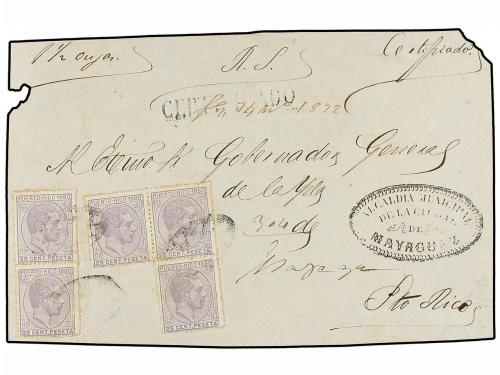 1½ onzas. R. S. Certificado.
CERTIFICADO
1872
Al Exmo Sr Gobernador General
de la Ysla
304 de
Mayagz
Pto Rico
ALCALDIA MUNICIPAL
DE LA CIUDAD
DE
MAYAGUEZ
PUERTO-RICO 1880
25 CENT. PESETA
PUERTO-RICO 1880
25 CENT. PESETA
PUERTO-RICO 1880
25 CENT. PESETA
PUERTO-RICO 1880
25 CENT. PESETA
PUERTO-RICO 1880
25 CENT. PESETA